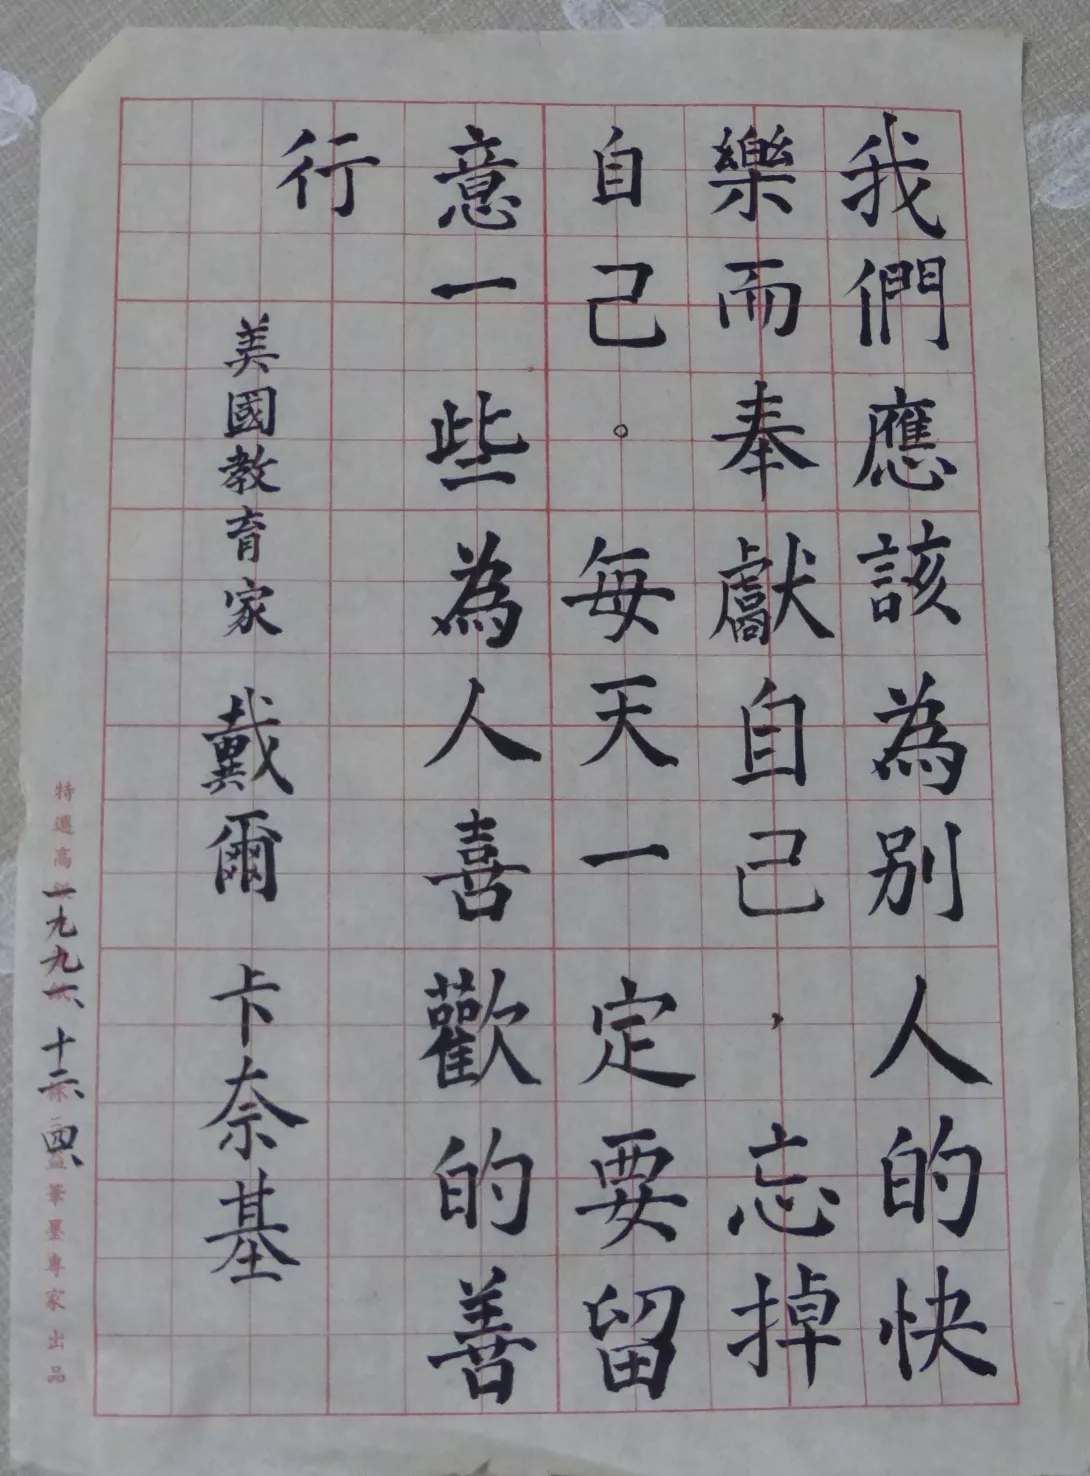 我們應該為別人的快
樂而奉獻自己，忘掉
自己。每天一定要留
意一些為人喜歡的善
行
美國教育家 戴爾 卡奈基
一九九 、十二、四、
特選高 筆墨專家出品